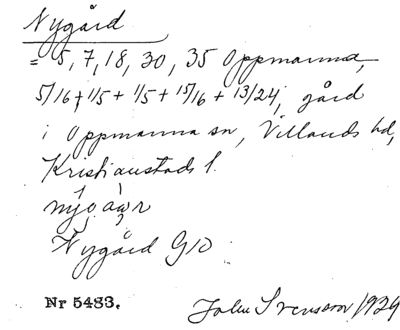 Nygård
= 5, 7, 18, 30, 35 Oppmanna,
5/16 + 1/5 + 1/5 + 15/16 + 13/24, gård
i Oppmanna sn, Villands hd,
Kristianstads l.
Nygård G10
Nr 5483.
John Svensson 1929